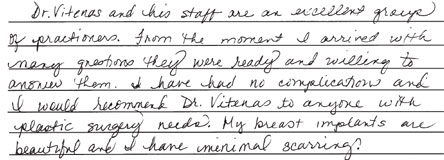 Dr. Vitenas and his staff are an excellent group
of practioners. From the moment I arrived with
many questions they were ready and willing to
answer them. I have had no complications and
I would recommend Dr. Vitenas to anyone with
plastic surgery needs. My breast implants are
beautiful and I have minimal scarring!